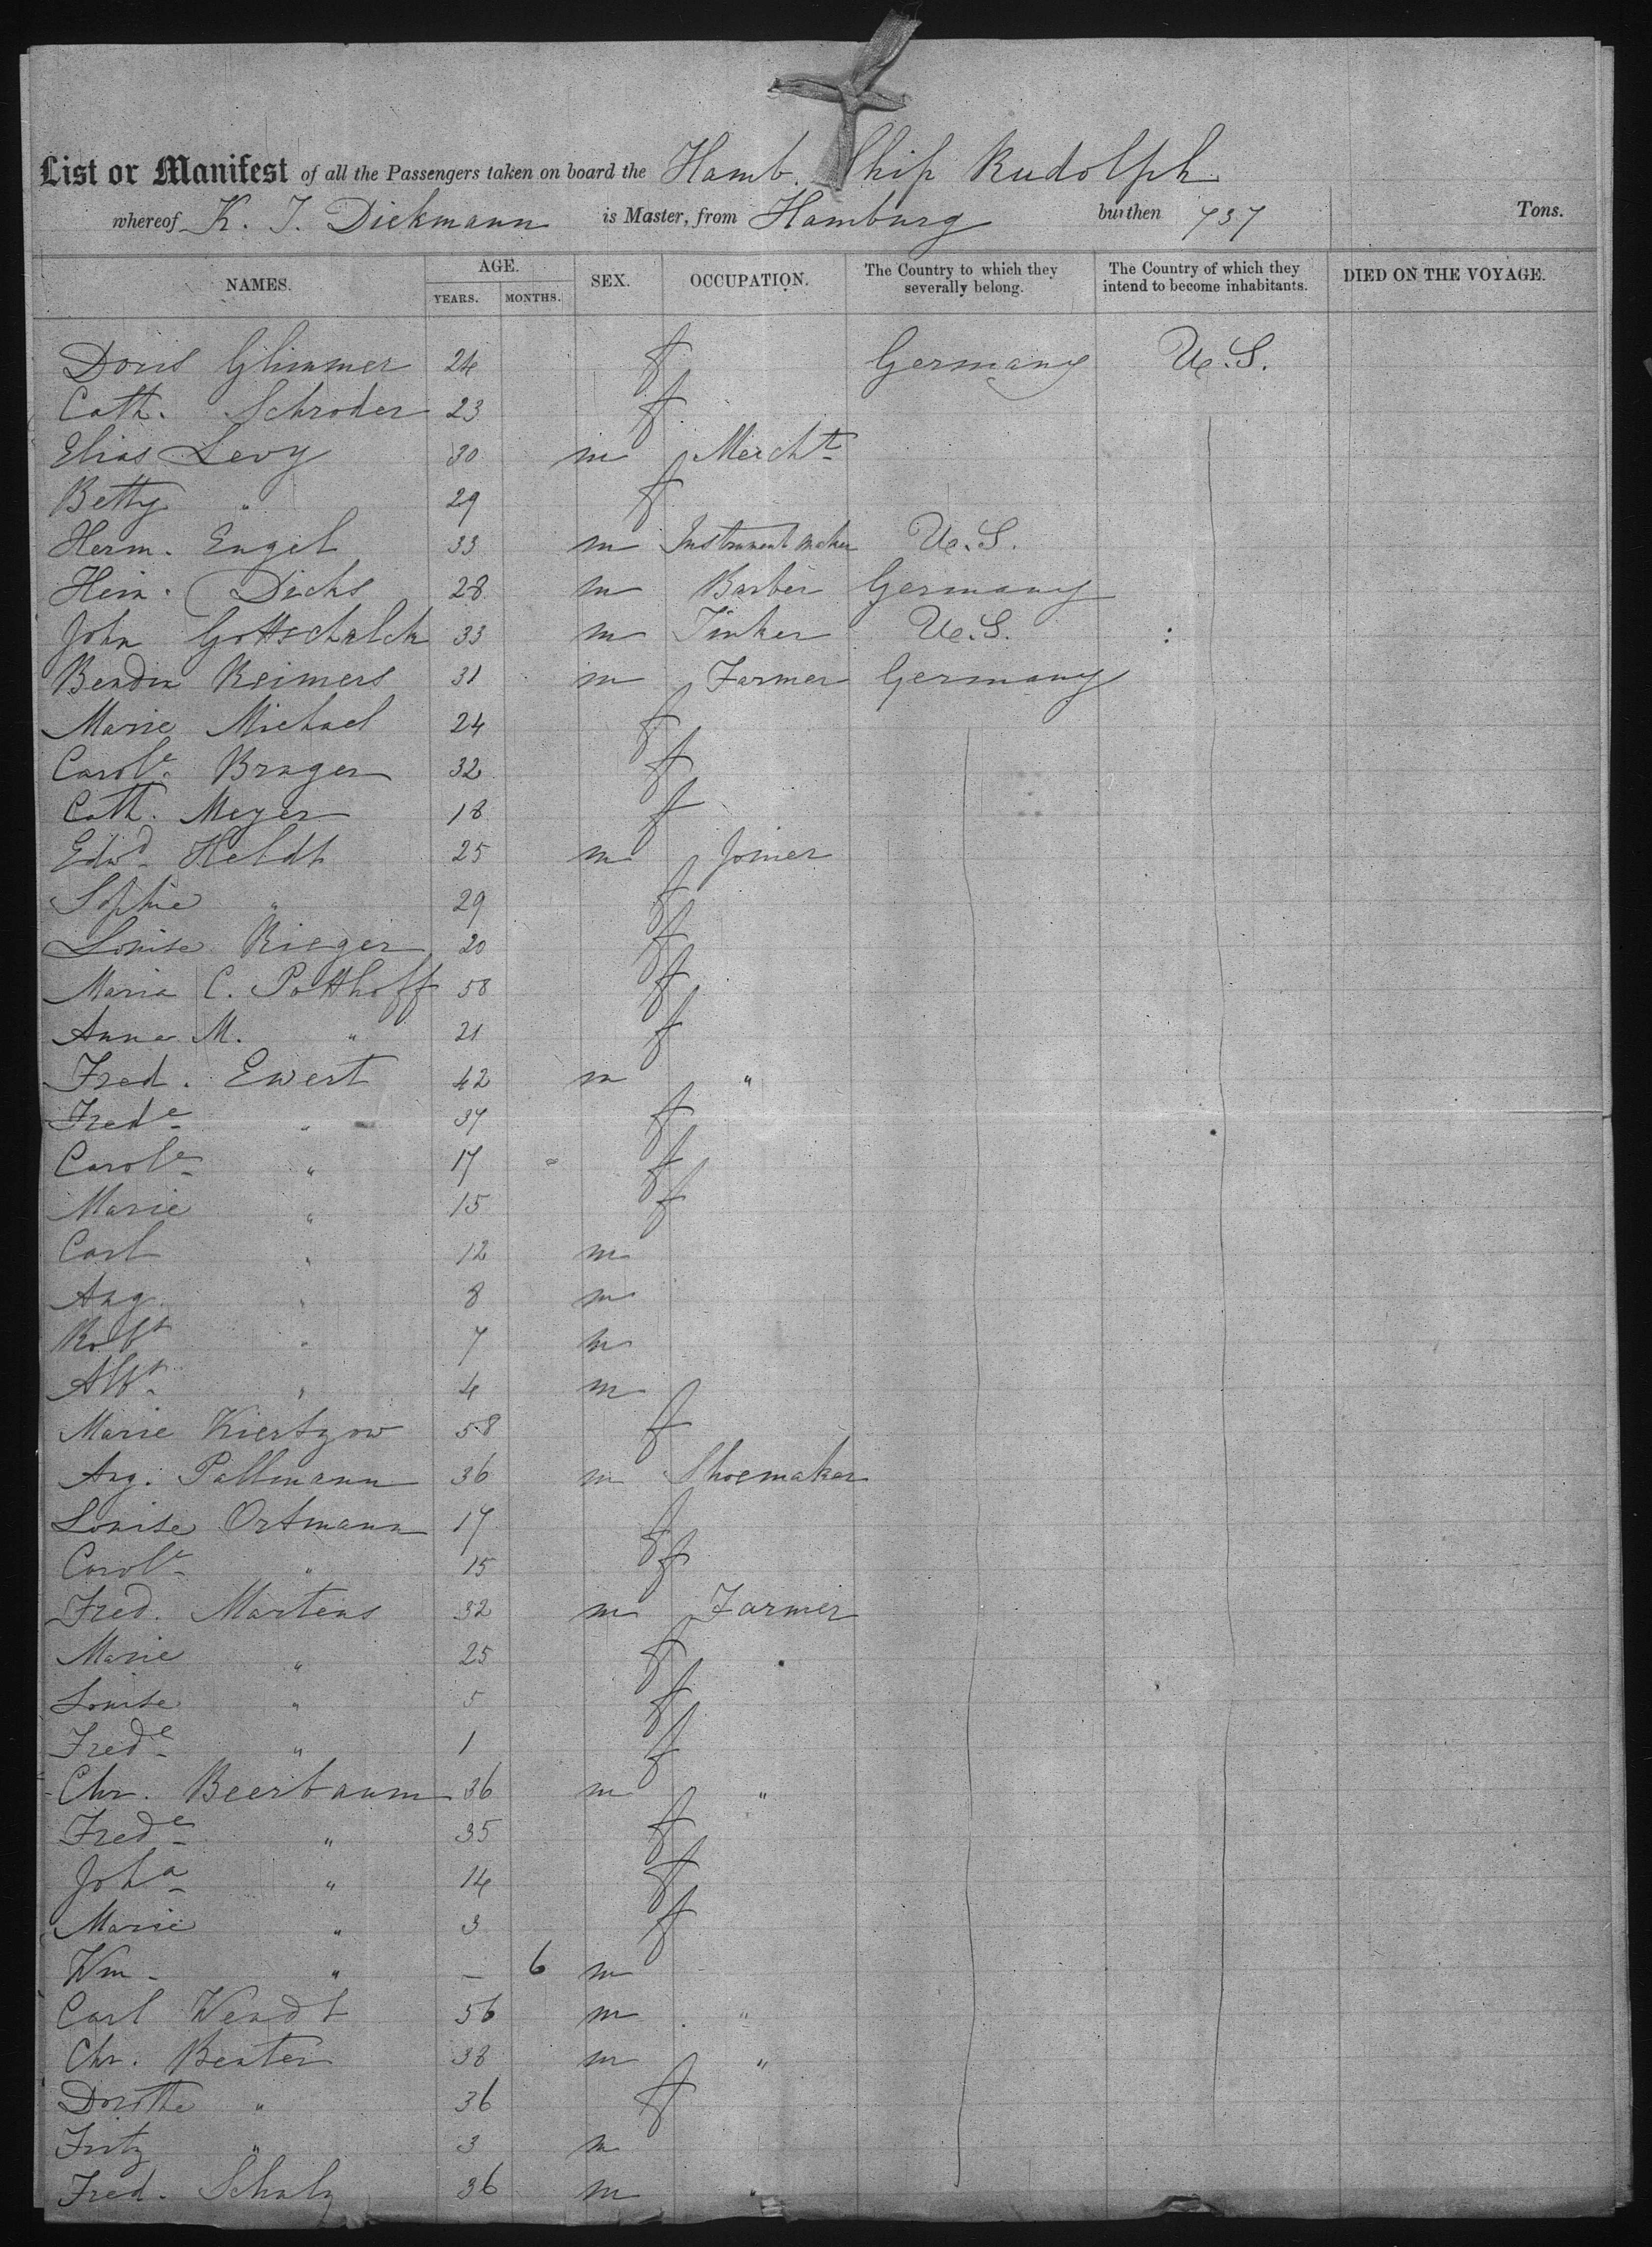 List or Manifest of all the Passengers taken on board the Hamb. Ship Rudolph
whereof K. J. Diekmann is Master, from Hamburg burthen 737 Tons.
NAMES. AGE. YEARS. MONTHS. SEX. OCCUPATION. The Country to which they severally belong. The Country of which they intend to become inhabitants. DIED ON THE VOYAGE.
Doris Glimmer 24 f Germany U.S.
Cath. Schroder 23 f
Elias Levy 30 m Mercht
Betty " 29 f
Herm. Engel 33 m Instrument maker U.S.
Hein. Dicks 28 m Barber Germany
John Gottschalck 33 m Tinker U.S.
Bendix Reimers 31 m Farmer Germany
Marie Michael 24 f
Carole Brager 32 f
Cath. Meyer 18 f
Edwd Heldt 25 m Joiner
Sophie " 29 f
Louise Rieger 20 f
Maria C. Potthoff 58 f
Anna M. " 21 f
Fred. Ewert 42 m "
Frede " 37 f
Carole " 17 f
Marie " 15 f
Carl " 12 m
Aug. " 8 m
Robt " 7 m
Albt " 4 m
Marie Kiertzow 58 f
Aug. Pallmann 36 m Shoemaker
Louise Ortmann 17 f
Carole " 15 f
Fred. Martens 32 m Farmer
Marie " 25 f
Louise " 5 f
Frede " 1 f
Chr. Beerbaum 36 m "
Frede " 35 f
Joha " 14 f
Marie " 3 f
Wm. " – 6 m
Carl Wendt 56 m "
Chr. Benter 38 m "
Dorothe " 36 f
Fritz " 3 m
Fred. Schulz 36 m "